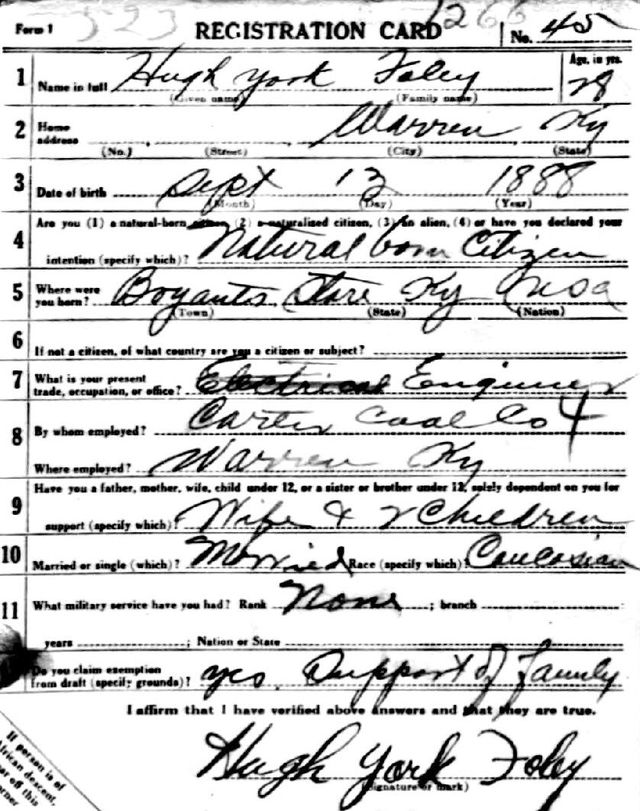 Form 1 523 REGISTRATION CARD 1266 No. 45
1 Name in full Hugh York Foley Age, in yrs. 28
(Given name) (Family name)
2 Home address Warren Ky
(No.) (Street) (City) (State)
3 Date of birth Sept 13 1888
(Month) (Day) (Year)
4 Are you (1) a natural-born citizen, (2) a naturalized citizen, (3) an alien, (4) or have you declared your
intention (specify which)? Natural born Citizen
5 Where were you born? Bryants Store Ky USA
(Town) (State) (Nation)
6 If not a citizen, of what country are you a citizen or subject?
7 What is your present trade, occupation, or office? Electrical Engineer
8 By whom employed? Carter Coal Co 4
Where employed? Warren Ky
9 Have you a father, mother, wife, child under 12, or a sister or brother under 12, solely dependent on you for
support (specify which)? Wife & 2 Children
10 Married or single (which)? Married Race (specify which)? Caucasian
11 What military service have you had? Rank None ; branch
years ; Nation or State
Do you claim exemption from draft (specify grounds)? yes. Support of family
I affirm that I have verified above answers and that they are true.
Hugh York Foley
(Signature or mark)
If person is of
African descent,
tear off this
corner